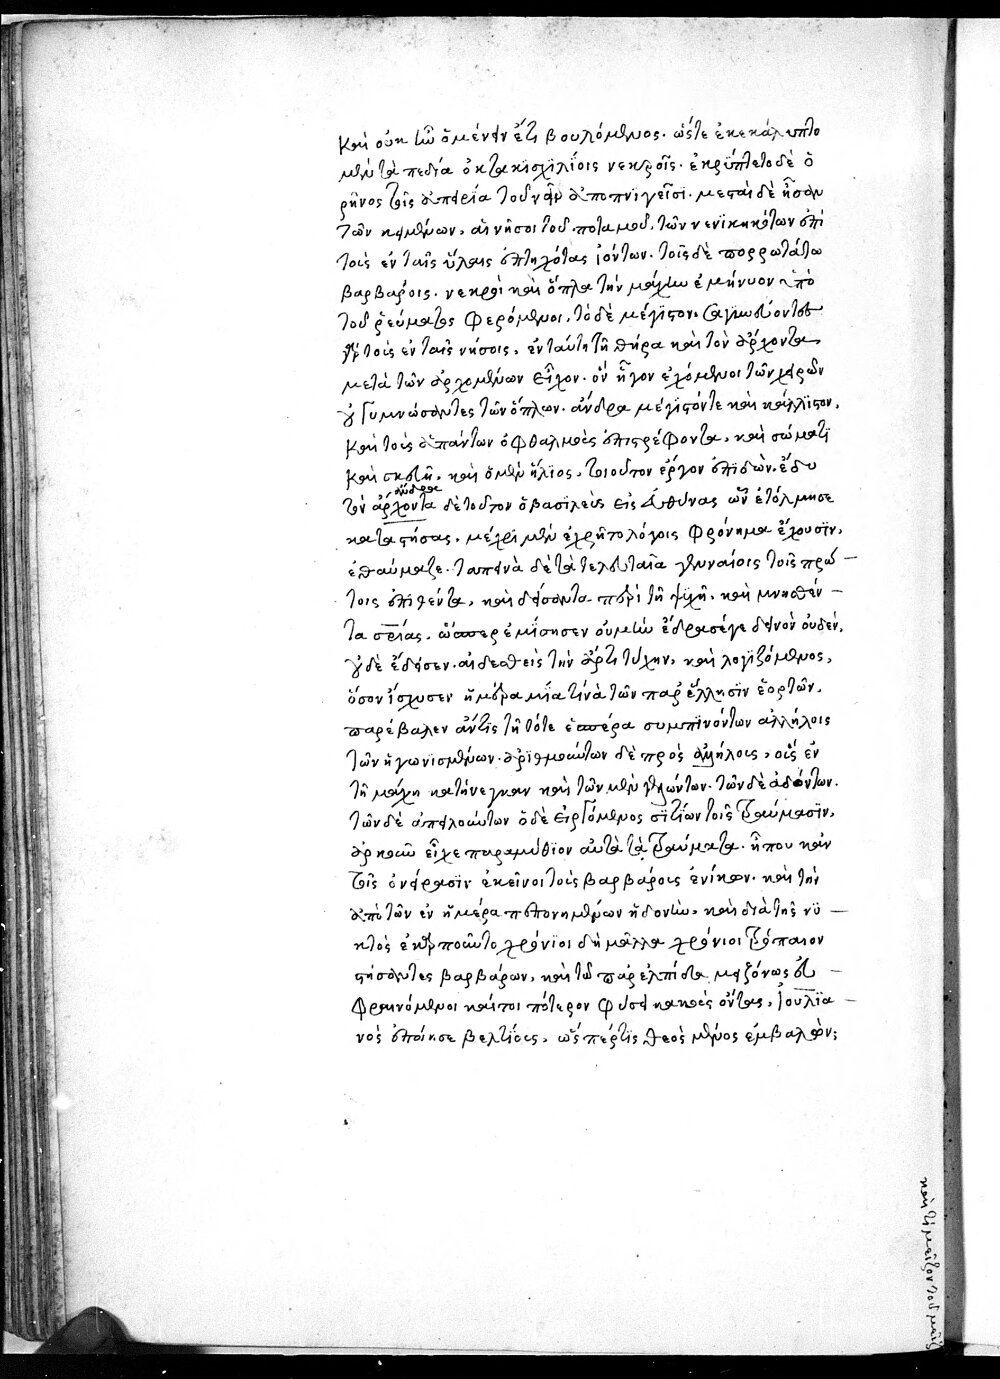 καὶ οὐκ ἦν ὁ μένειν ἔτι βουλόμενος. ὥστε ἐκεκάλυπτο
μὲν τὰ πεδία ὀκτακισχιλίοις νεκροῖς. ἐκρύπτετο δὲ ὁ
ῥῆνος τοῖς ἀπειρία τοῦ νεῖν ἀποπνιγεῖσι. μεσταὶ δὲ ἦσαν
τῶν κειμένων, αἱ νῆσοι τοῦ ποταμοῦ, τῶν νενικηκότων ἐπὶ
τοὺς ἐν ταῖς ὕλαις ἐπτηχότας ἰόντων. τοῖς δὲ πορρωτάτω
βαρβάροις. νεκροὶ καὶ ὅπλα τὴν μάχην ἐμήνυον ὑπὸ
τοῦ ῥεύματος φερόμενοι. τὸ δὲ μέγιστον, σαγηνεύοντες
γὰρ τοὺς ἐν ταῖς νήσοις, ἐν ταύτῃ τῇ θήρα καὶ τὸν ἄρχοντα
μετὰ τῶν ἀρχομένων εἷλον. ὃν ἦγον ἐχόμενοι τῶν χειρῶν
οὐ γυμνώσαντες τῶν ὅπλων. ἄνδρα μέγιστόν τε καὶ κάλλιστον,
καὶ τοὺς ἁπάντων ὀφθαλμοὺς ἐπιστρέφοντα, καὶ σώματι
καὶ σκευῇ, καὶ ὁ μὲν ἥλιος, τοιοῦτον ἔργον ἐπιδὼν. ἔδυ
τὸν ἄρχοντα ἄνδρα δὲ τοῦτον ὁ βασιλεὺς εἰς εὐθύνας ὧν ἐτόλμησε
καταστήσας, μέχρι μὲν ἐχρῆτο λόγοις φρόνημα ἔχουσιν,
ἐθαύμαζε. ταπεινὰ δὲ τὰ τελευταῖα γενναίοις τοῖς πρώ-
τοις ἐπιθέντα, καὶ δείσαντα περὶ τῇ ψυχῇ, καὶ μνησθέν-
τα σωτηρίας, ὥσπερ ἐμίσησεν οὐ μὴν ἔδρασέ γε δεινὸν οὐδέν,
οὐδὲ ἔδησεν. αἰδεσθεὶς τὴν ἄρτι τύχην, καὶ λογιζόμενος,
ὅσον ἴσχυσεν ἡμέρα μία τίνὰ τῶν παρ' ἕλλησιν ἑορτῶν,
παρέβαλεν ἄντις τῇ τότε ἑσπέρα συμπινόντων ἀλλήλοις
τῶν ἠγωνισμένων. ἀριθμούντων δὲ πρὸς ἀλλήλους, οὓς ἐν
τῇ μάχη κατήνεγκαν καὶ τῶν μὲν γελώντων. τῶν δὲ ἀδόντων.
τῶν δὲ ἀπειλούντων ὁ δὲ εἰργόμενος σιτίων τοῖς τραύμασιν,
ἀρκοῦν εἶχε παραμύθιον αὐτὰ τὰ τραύματα. ἦ που κἀν
τοῖς ὀνείρασιν ἐκεῖνοι τοὺς βαρβάρους ἐνίκων. καὶ τὴν
ἀπὸ τῶν ἐν ἡμέρα πεπονημένων ἡδονὴν, καὶ διὰ τῆς νυ-
κτὸς ἐκαρποῦντο χρόνιοι δὴ μάλα χρόνιοι τρόπαιον
στήσαντες βαρβάρων, καὶ τῶ παρ' ἐλπίδα μειζόνως εὐ-
φραινόμενοι καίτοι πότερον φύσει κακοὺς ὄντας, ἰουλια-
νὸς ἐποίησε βελτίους, ὥσπέρτις θεὸς μένος ἐμβαλὼν;
καὶ τί μεῖζον τοῦ